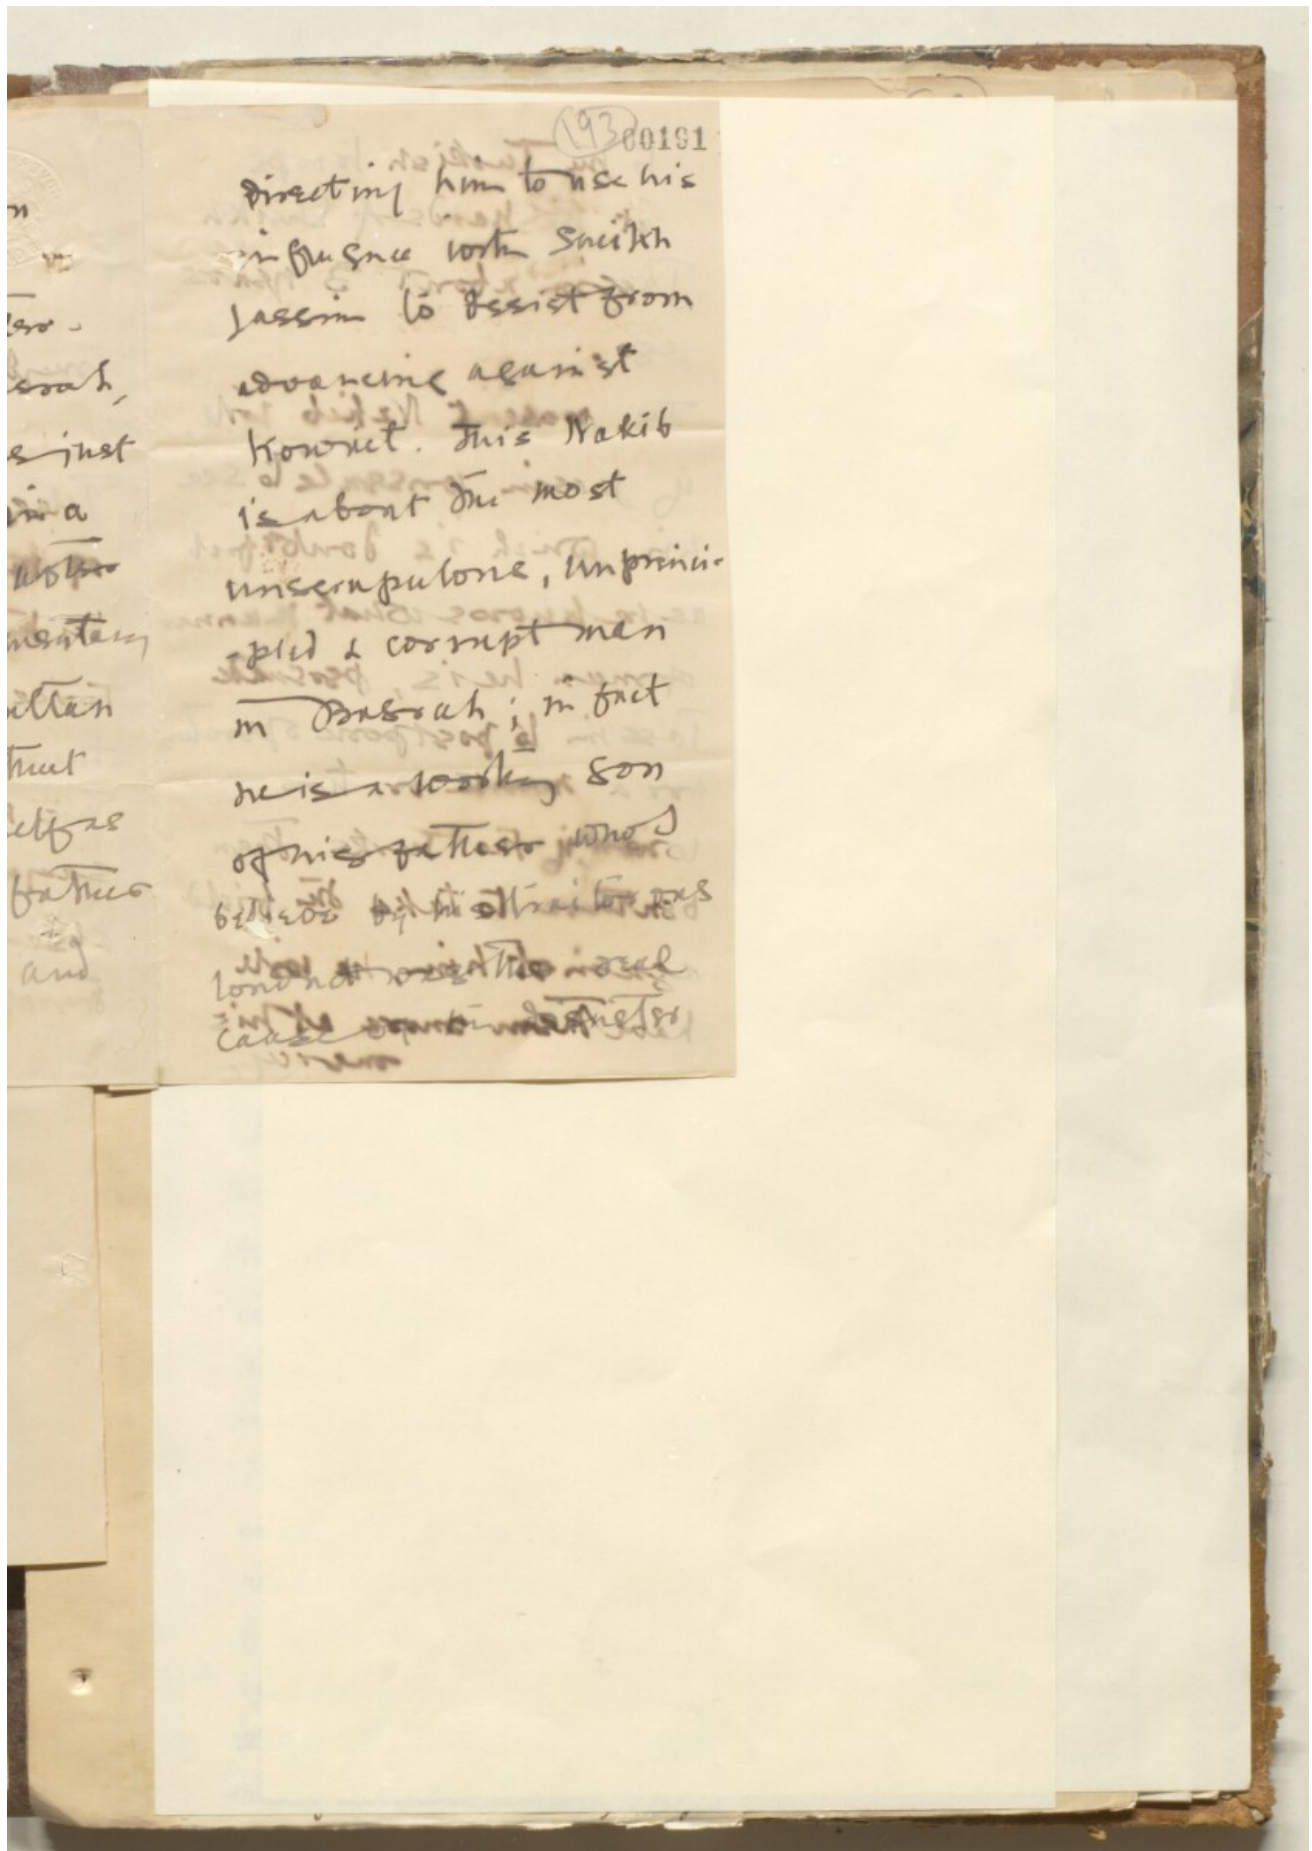 193
00191
directing him to use his
influence with Sheikh
Jassim to desist from
advancing against
Koweit. This Nakib
is about the most
unscrupulous, unprinci-
-pled & corrupt man
in Basrah; in fact
he is a worthy son
of his father who I
believe by his traitorous
conduct was the real
cause of
srah,
s just
in a
father
and